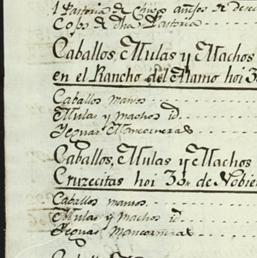 1 Pastoria de Chivos
Caballos, Mulas y Machos
en el Rancho del Alamo hoi 3
Caballos mansos
Mulas y machos id.
Yeguas Mancorneras
Caballos, Mulas y Machos
Cruzecitas hoi 30 de Nobie
Caballos mansos
Mulas y machos id.
Yeguas Mancorneras